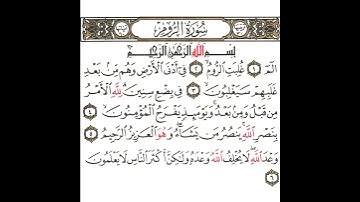 سُورَةُ الرُّومِ
بِسْمِ اللَّهِ الرَّحْمَٰنِ الرَّحِيمِ
الٓمٓ ١ غُلِبَتِ الرُّومُ ٢ فِىٓ أَدْنَى الْأَرْضِ وَهُم مِّنۢ بَعْدِ
غَلَبِهِمْ سَيَغْلِبُونَ ٣ فِى بِضْعِ سِنِينَ ۗ لِلَّهِ الْأَمْرُ
مِن قَبْلُ وَمِنۢ بَعْدُ ۚ وَيَوْمَئِذٍ يَفْرَحُ الْمُؤْمِنُونَ ٤
بِنَصْرِ اللَّهِ ۚ يَنصُرُ مَن يَشَآءُ ۖ وَهُوَ الْعَزِيزُ الرَّحِيمُ ٥
وَعْدَ اللَّهِ ۖ لَا يُخْلِفُ اللَّهُ وَعْدَهُۥ وَلَٰكِنَّ أَكْثَرَ النَّاسِ لَا يَعْلَمُونَ
٦